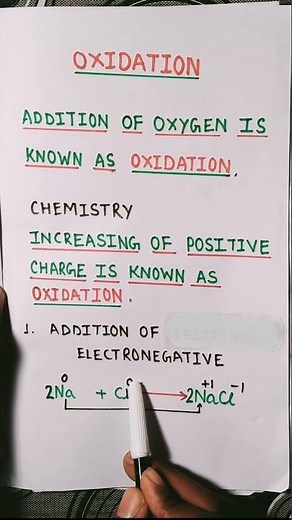 OXIDATION
ADDITION OF OXYGEN IS
KNOWN AS OXIDATION.
CHEMISTRY
INCREASING OF POSITIVE
CHARGE IS KNOWN AS
OXIDATION.
1. ADDITION OF
ELECTRONEGATIVE
0 0 +1 -1
2Na + Cl → 2NaCl